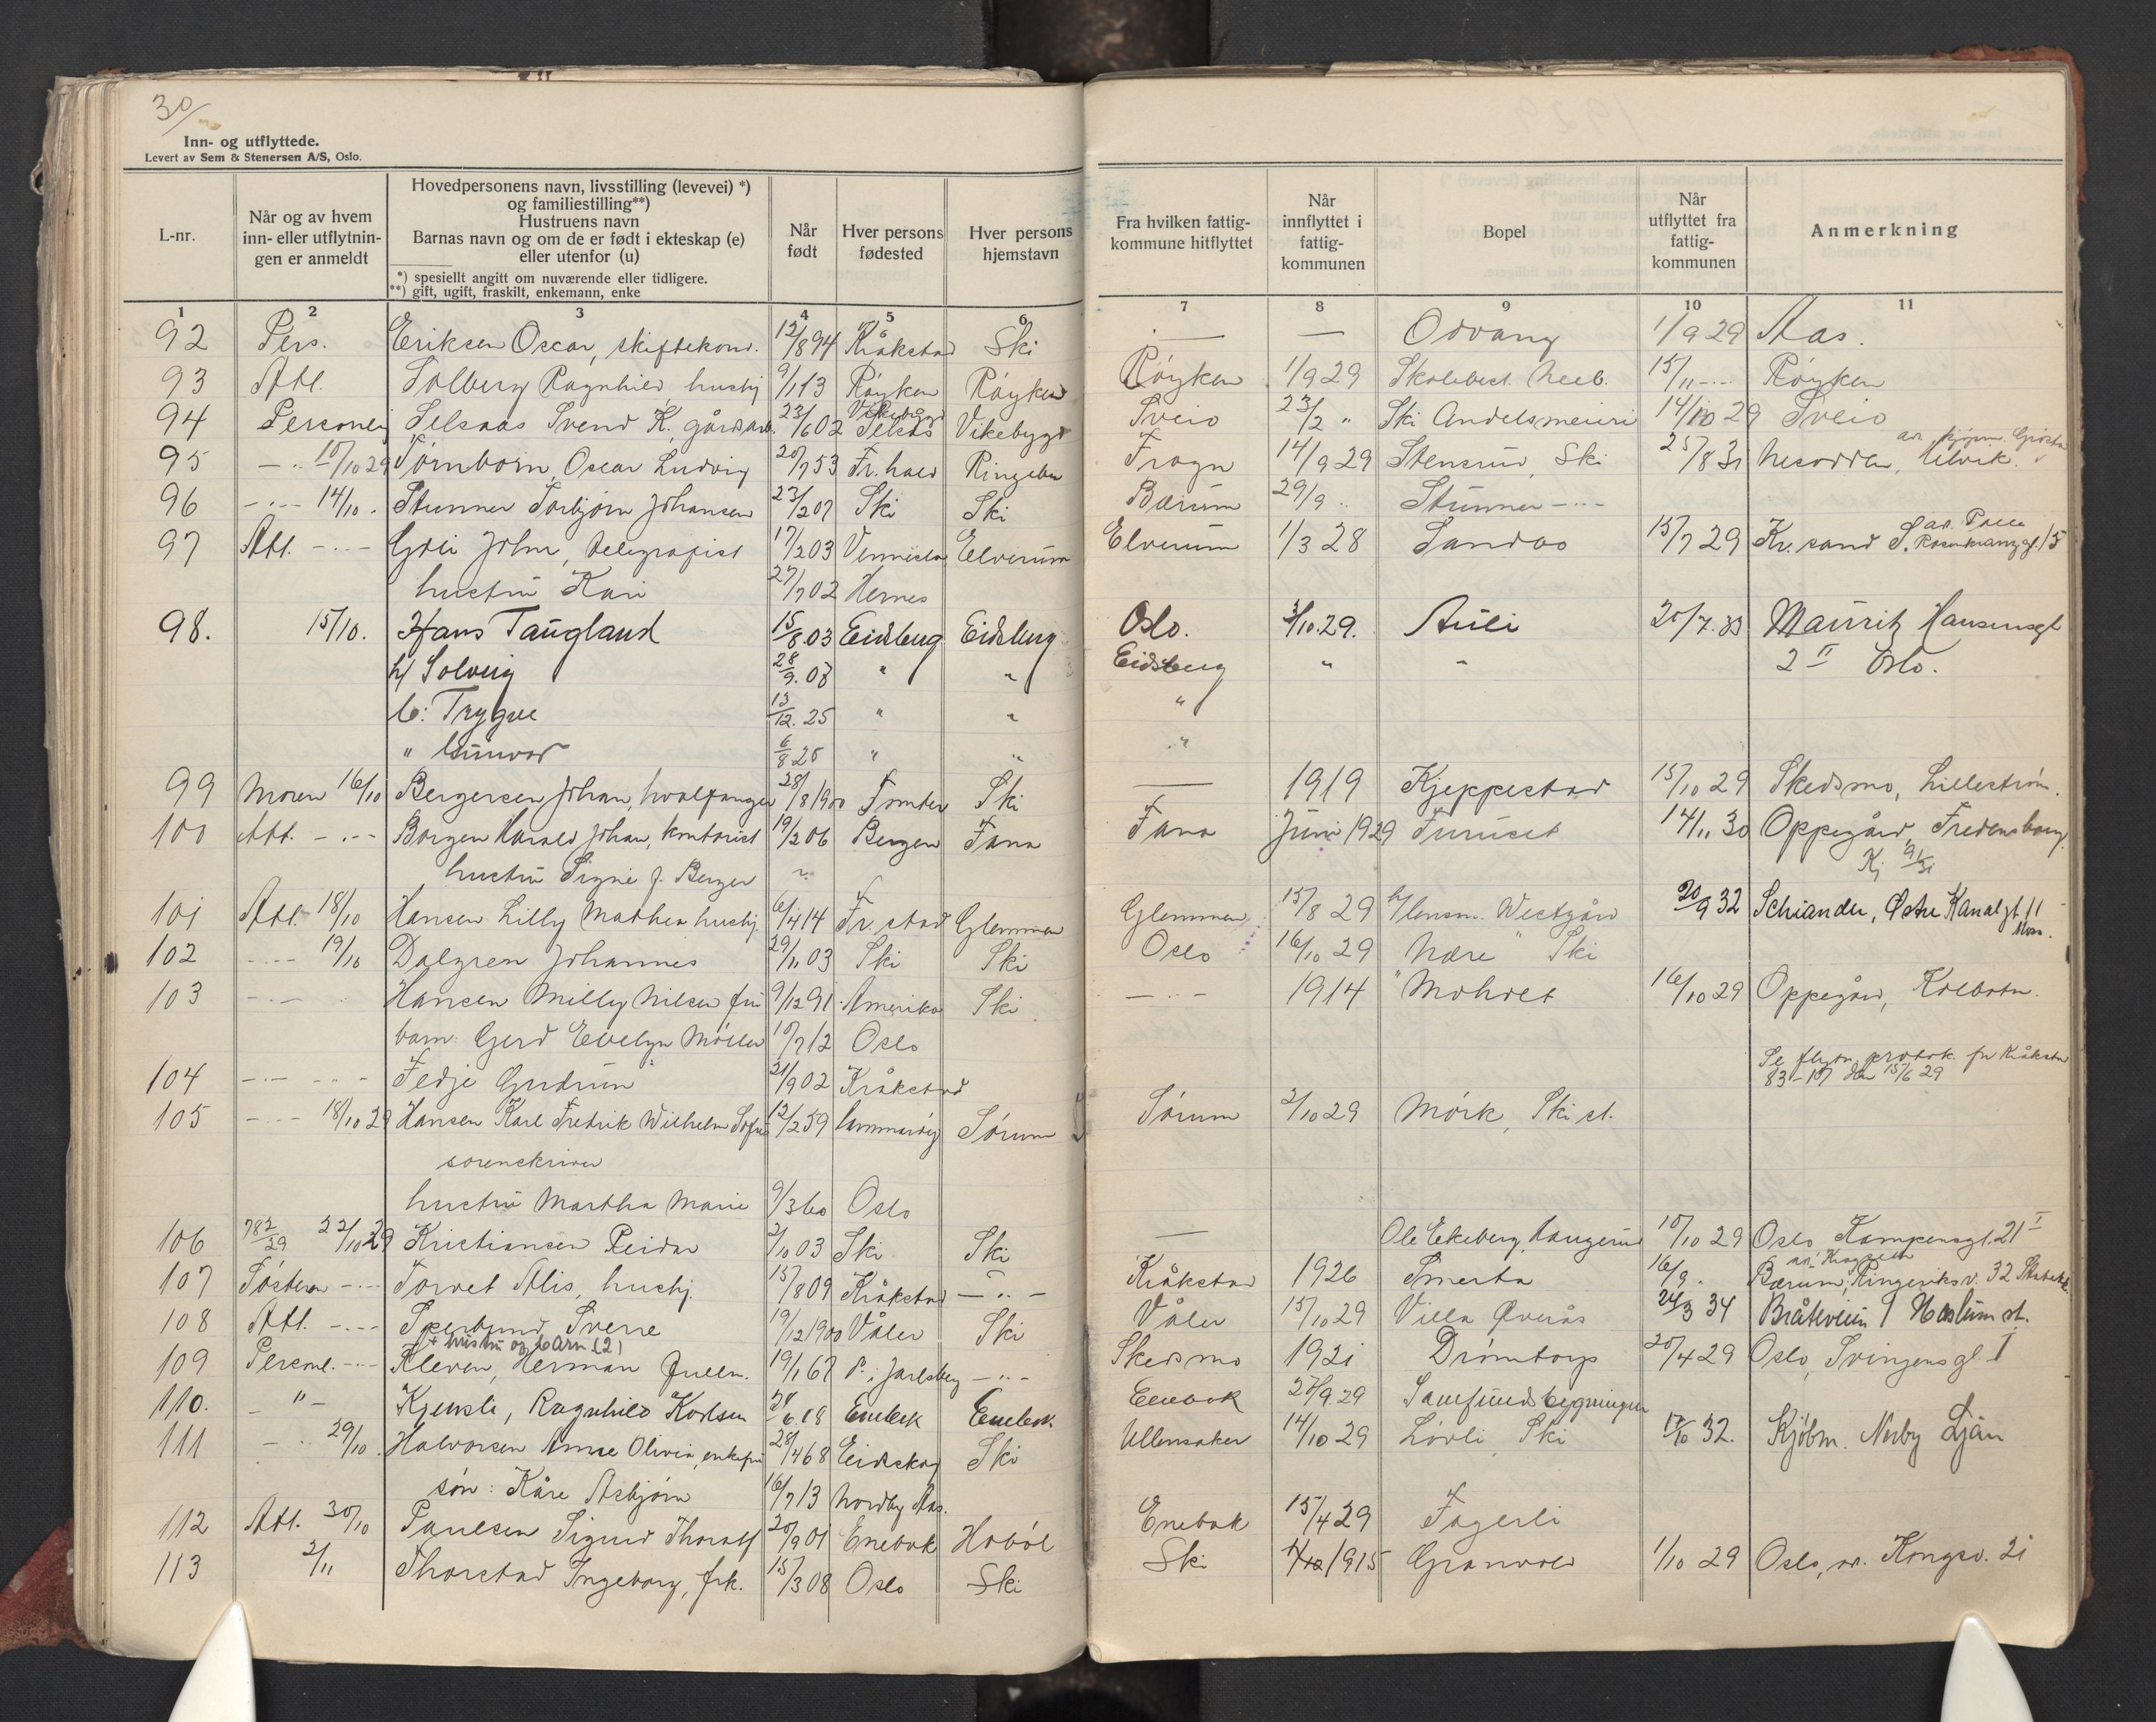 30/
Inn- og utflyttede.
Levert av Sem & Stenersen A/S, Oslo.
L-nr.
Når og av hvem inn- eller utflytnin-gen er anmeldt
Hovedpersonens navn, livsstilling (levevei) *)
og familiestilling**)
Hustruens navn
Barnas navn og om de er født i ekteskap (e)
eller utenfor (u)
*) spesiellt angitt om nuværende eller tidligere.
**) gift, ugift, fraskilt, enkemann, enke
Når født
Hver persons fødested
Hver persons hjemstavn
Fra hvilken fattig-kommune hitflyttet
Når innflyttet i fattig-kommunen
Bopel
Når utflyttet fra fattig-kommunen
Anmerkning
1 2 3 4 5 6 7 8 9 10 11
92 Pers. Eriksen Oscar, skiftekond. 12/8 94 Kråkstad Ski — — Odvang 1/9 29 Aas.
93 Att. Solberg Ragnhild, hushj 9/1 13 Røyken Røyken Røyken 1/9 29 Skolebest. Neeb. 15/11 -"- Røyken
94 Personlig Selsaas Svend K. gårdsarb. 23/6 02 Vikebygd Selsås Vikebygd Sveio 23/2 " Ski Andelsmeieri 14/10 29 Sveio
95 -"- 15/10 29 Törnborn, Oscar Ludvig 20/7 53 Fr.hald Ringebu Frogn 14/9 29 Stensrud, Ski 25/8 31 Nesodden, Ulvik.
96 -"- 14/10. Stunner Torbjørn Johansen 23/2 07 Ski Ski Bærum 29/9 " Stunner -"-
97 Att. -"- Goli John, telegrafist 17/2 03 Vennesla Elverum Elverum 1/3 28 Sandas 15/7 29 Kr.sand S. Rosenkranzgt. 15
hustru Kari 27/7 02 Hernes
98. 15/10. Hans Taugland 15/8.03 Eidsberg Eidsberg Oslo. 3/10.29. Auli 20/7.33 Mauritz Hansensgt
h/ Solveig 28/9.03 " " Eidsberg " " 2 II Oslo.
b: Trygve 13/12.25 " " "
" Gunvor 6/8 26 " " "
99 Moren 16/10 Bergersen Johan, hvalfanger 28/8 1900 Tomter Ski — 1919 Kjeppestad 15/10 29 Skedsmo, Lillestrøm.
100 Att. -"- Borgen Harald Johan, kontorist 19/2 06 Bergen Fana Fana Juni 1929 Furuset 14/11 30 Oppegård, Fredensborg.
hustru Signe f. Berger
101 Att. 18/10 Hansen Lilly Mathea hushj. 6/4 14 Fr.stad Glemmen Glemmen 15/8 29 h/ lensm. Westgård 20/9 32 Schiander, Østre Kanalgt 11 Moss.
102 -"- 19/10 Dalgren Johannes 29/11 03 Ski Ski Oslo 16/10 29 Nære " Ski
103 -"- Hansen Milly Nilsen fru 9/12 91 Amerika Ski -"- 1914 " Moholt 16/10 29 Oppegård, Kolbotn.
barn: Gerd Evelyn Möller 10/7 12 Oslo
104 -"- -"- Fedje Gudrun 21/9 02 Kråkstad Se flytn. protok. for Kråkstad
83-107 den 15/6 29
105 -"- 18/10 29 Hansen Karl Fredrik Wilhelm Sofus 12/2 59 Sørum Sørum 2/10 29 Mörk, Ski st.
sorenskriver
hustru Martha Marie 9/3 60 Oslo
106 782/29 22/10 29 Kristiansen Reidar 2/10 03 Ski Ski — Ole Ekeberg, Haugerud 10/10 29 Oslo Kampensgt. 21 I
107 Søsteren -"- Torvet Alis, hushj. 15/8 09 Kråkstad -"- Kråkstad 1926 Smerta 16/9. Bærum, Ringeriksv. 32 Stabekk
108 Att. -"- Sverre 19/12 1900 Våler Ski Våler 15/10 29 Villa Øverås 24/3 34 Bråteveien 1 Haslum st.
+ hustru og barn (2)
109 Personl. -"- Kleven, Herman 19/1 67 P. i Jarlsberg -"- Skedsmo 1921 Drömtorp 20/4 29 Oslo, Svingensgt. I
110. -"- Kjensli, Ragnhild Karlsen 24/6.08 Enebak Enebak Enebak 27/9.29 Samfundsbygningen
111 -"- 29/10. Halvorsen Anne Olivia, enkefru 28/4 68 Eidskog Ski Ullensaker 14/10 29 Lövli, Ski 17/10 32. Kjöbm. Nerby Ljan
søn: Kåre Asbjørn 16/7 13 Nordby Aas.
112 Att. 30/10 Paulsen Sigurd Thoralf 20/9 01 Enebak Hobøl Enebak 15/4 29 Fagerli
113 2/11 Thorstad Ingeborg, frk. 15/3 08 Oslo Ski Ski 1915 Granvold 1/10 29 Oslo, Kongsv. 21